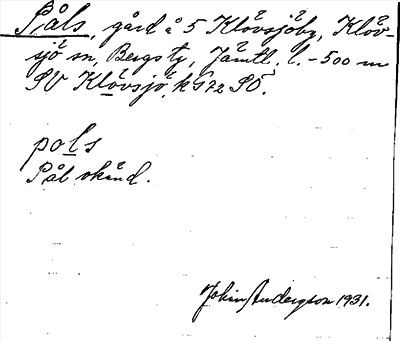 Påls, gård å 5 Klövsjöby, Klöv-
sjö sn, Bergs tg, Jämtl. l. - 500 m
SV Klövsjö, k 572 SO.
pols
Pål okänd.
Johin Andersson 1931.